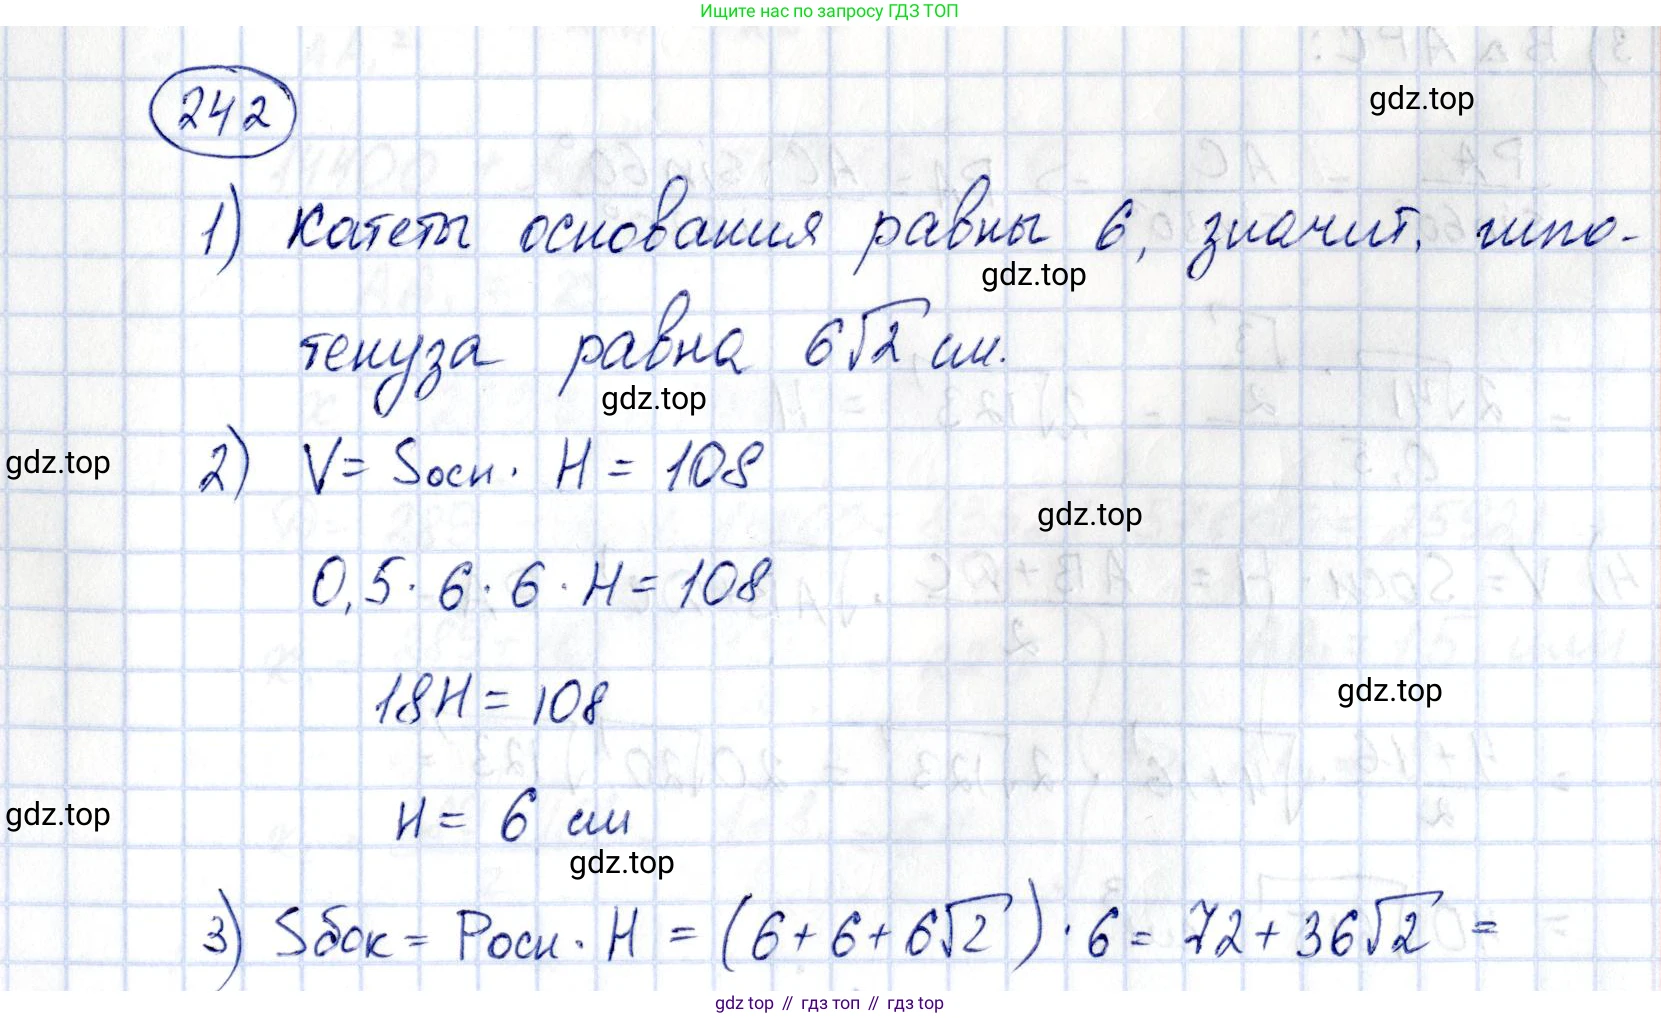 Ищите нас по запросу ГДЗ ТОП
242
gdz.top
1) Катеты основания равны 6, значит, гипо-
gdz.top
тенуза равна 6√2 см.
gdz.top
gdz.top
2) V = Sосн · H = 108
gdz.top
0,5 · 6 · 6 · H = 108
18H = 108
gdz.top
gdz.top
H = 6 см
gdz.top
3) Sбок = Pосн · H = (6 + 6 + 6√2) · 6 = 72 + 36√2 =
gdz top // гдз топ // гдз top